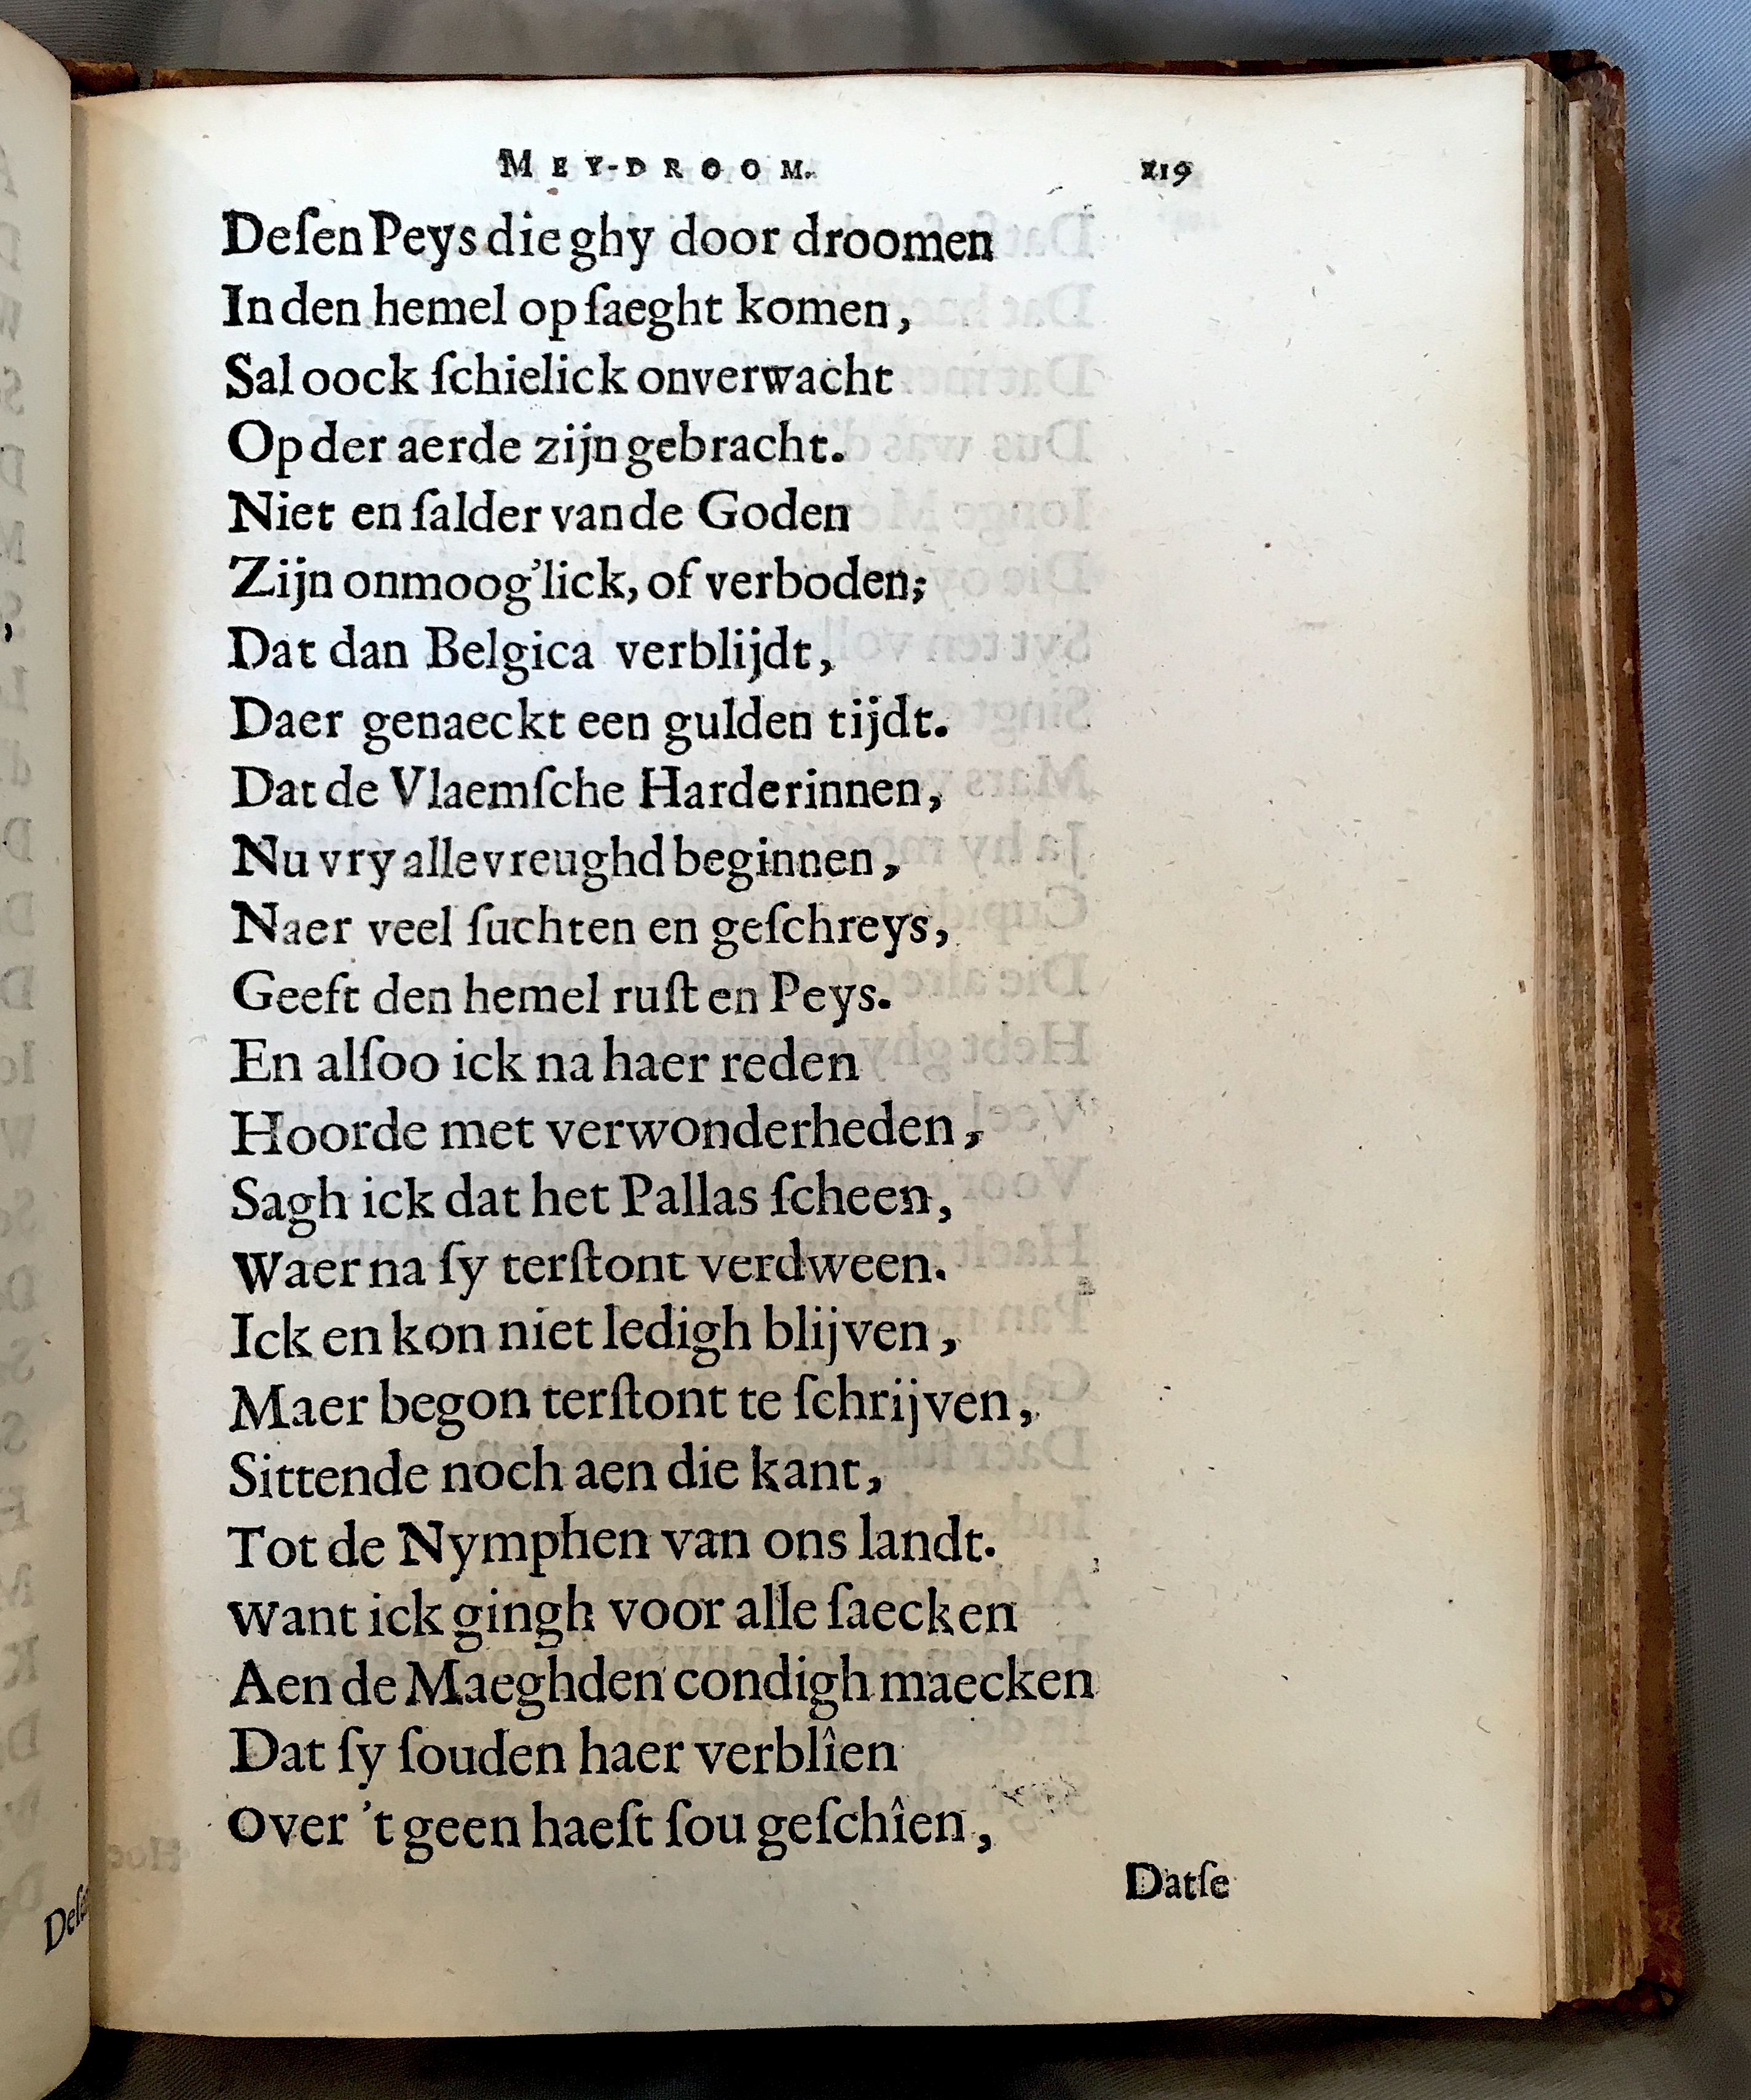 MEY-DROOM. 219
Deſen Peys die ghy door droomen
In den hemel op ſaeght komen,
Sal oock ſchielick onverwacht
Op der aerde zijn gebracht.
Niet en ſalder van de Goden
Zijn onmoog'lick, of verboden;
Dat dan Belgica verblijdt,
Daer genaeckt een gulden tijdt.
Dat de Vlaemſche Harderinnen,
Nu vry alle vreughd beginnen,
Naer veel ſuchten en geſchreys,
Geeft den hemel ruſt en Peys.
En alſoo ick na haer reden
Hoorde met verwonderheden,
Sagh ick dat het Pallas ſcheen,
Waer na ſy terſtont verdween.
Ick en kon niet ledigh blijven,
Maer begon terſtont te ſchrijven,
Sittende noch aen die kant,
Tot de Nymphen van ons landt.
Want ick gingh voor alle ſaecken
Aen de Maeghden condigh maecken
Dat ſy ſouden haer verblîen
Over 't geen haeſt ſou geſchîen,
Datſe